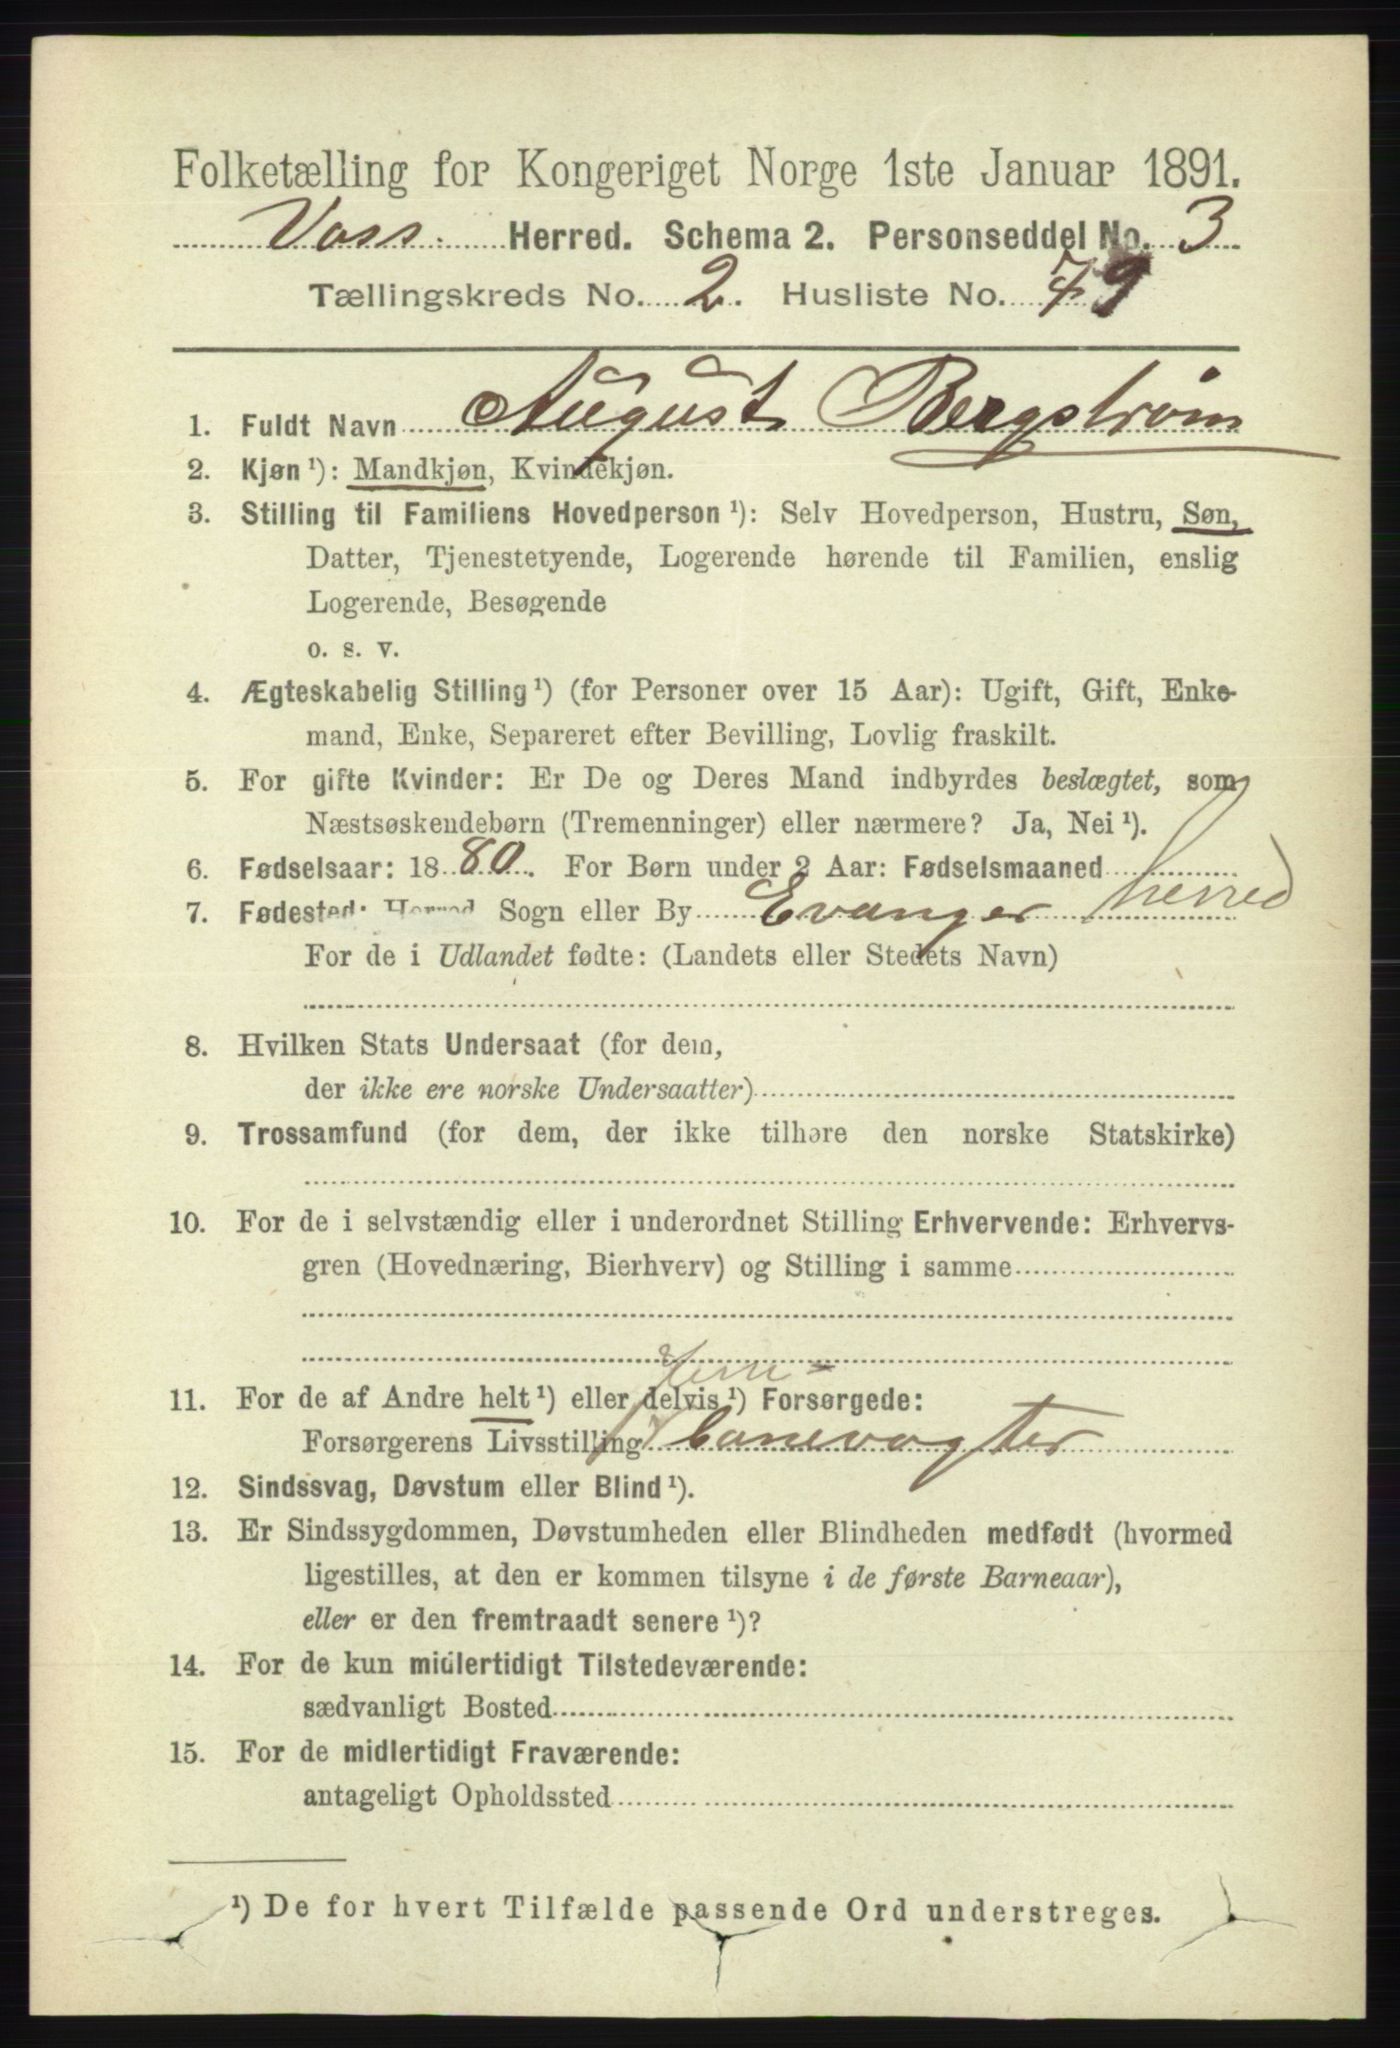 Folketælling for Kongeriget Norge 1ste Januar 1891.
Voss. Herred. Schema 2. Personseddel No. 3
Tællingskreds No. 2. Husliste No. 79
1. Fuldt Navn August Bergstrøm
2. Kjøn ¹): Mandkjøn, Kvindekjøn.
3. Stilling til Familiens Hovedperson ¹): Selv Hovedperson, Hustru, Søn,
Datter, Tjenestetyende, Logerende hørende til Familien, enslig
Logerende, Besøgende
o. s. v.
4. Ægteskabelig Stilling ¹) (for Personer over 15 Aar): Ugift, Gift, Enke-
mand, Enke, Separeret efter Bevilling, Lovlig fraskilt.
5. For gifte Kvinder: Er De og Deres Mand indbyrdes beslægtet, som
Næstsøskendebørn (Tremenninger) eller nærmere? Ja, Nei ¹).
6. Fødselsaar: 1880. For Børn under 2 Aar: Fødselsmaaned
7. Fødested: Herred, Sogn eller By Evanger herred
For de i Udlandet fødte: (Landets eller Stedets Navn)
8. Hvilken Stats Undersaat (for dem,
der ikke ere norske Undersaatter)
9. Trossamfund (for dem, der ikke tilhøre den norske Statskirke)
10. For de i selvstændig eller i underordnet Stilling Erhvervende: Erhvervs-
gren (Hovednæring, Bierhverv) og Stilling i samme
11. For de af Andre helt ¹) eller delvis ¹) Forsørgede:
Forsørgerens Livsstilling banevogter
12. Sindssvag, Døvstum eller Blind ¹).
13. Er Sindssygdommen, Døvstumheden eller Blindheden medfødt (hvormed
ligestilles, at den er kommen tilsyne i de første Barneaar),
eller er den fremtraadt senere ¹)?
14. For de kun midlertidigt Tilstedeværende:
sædvanligt Bosted
15. For de midlertidigt Fraværende:
antageligt Opholdssted
¹) De for hvert Tilfælde passende Ord understreges.